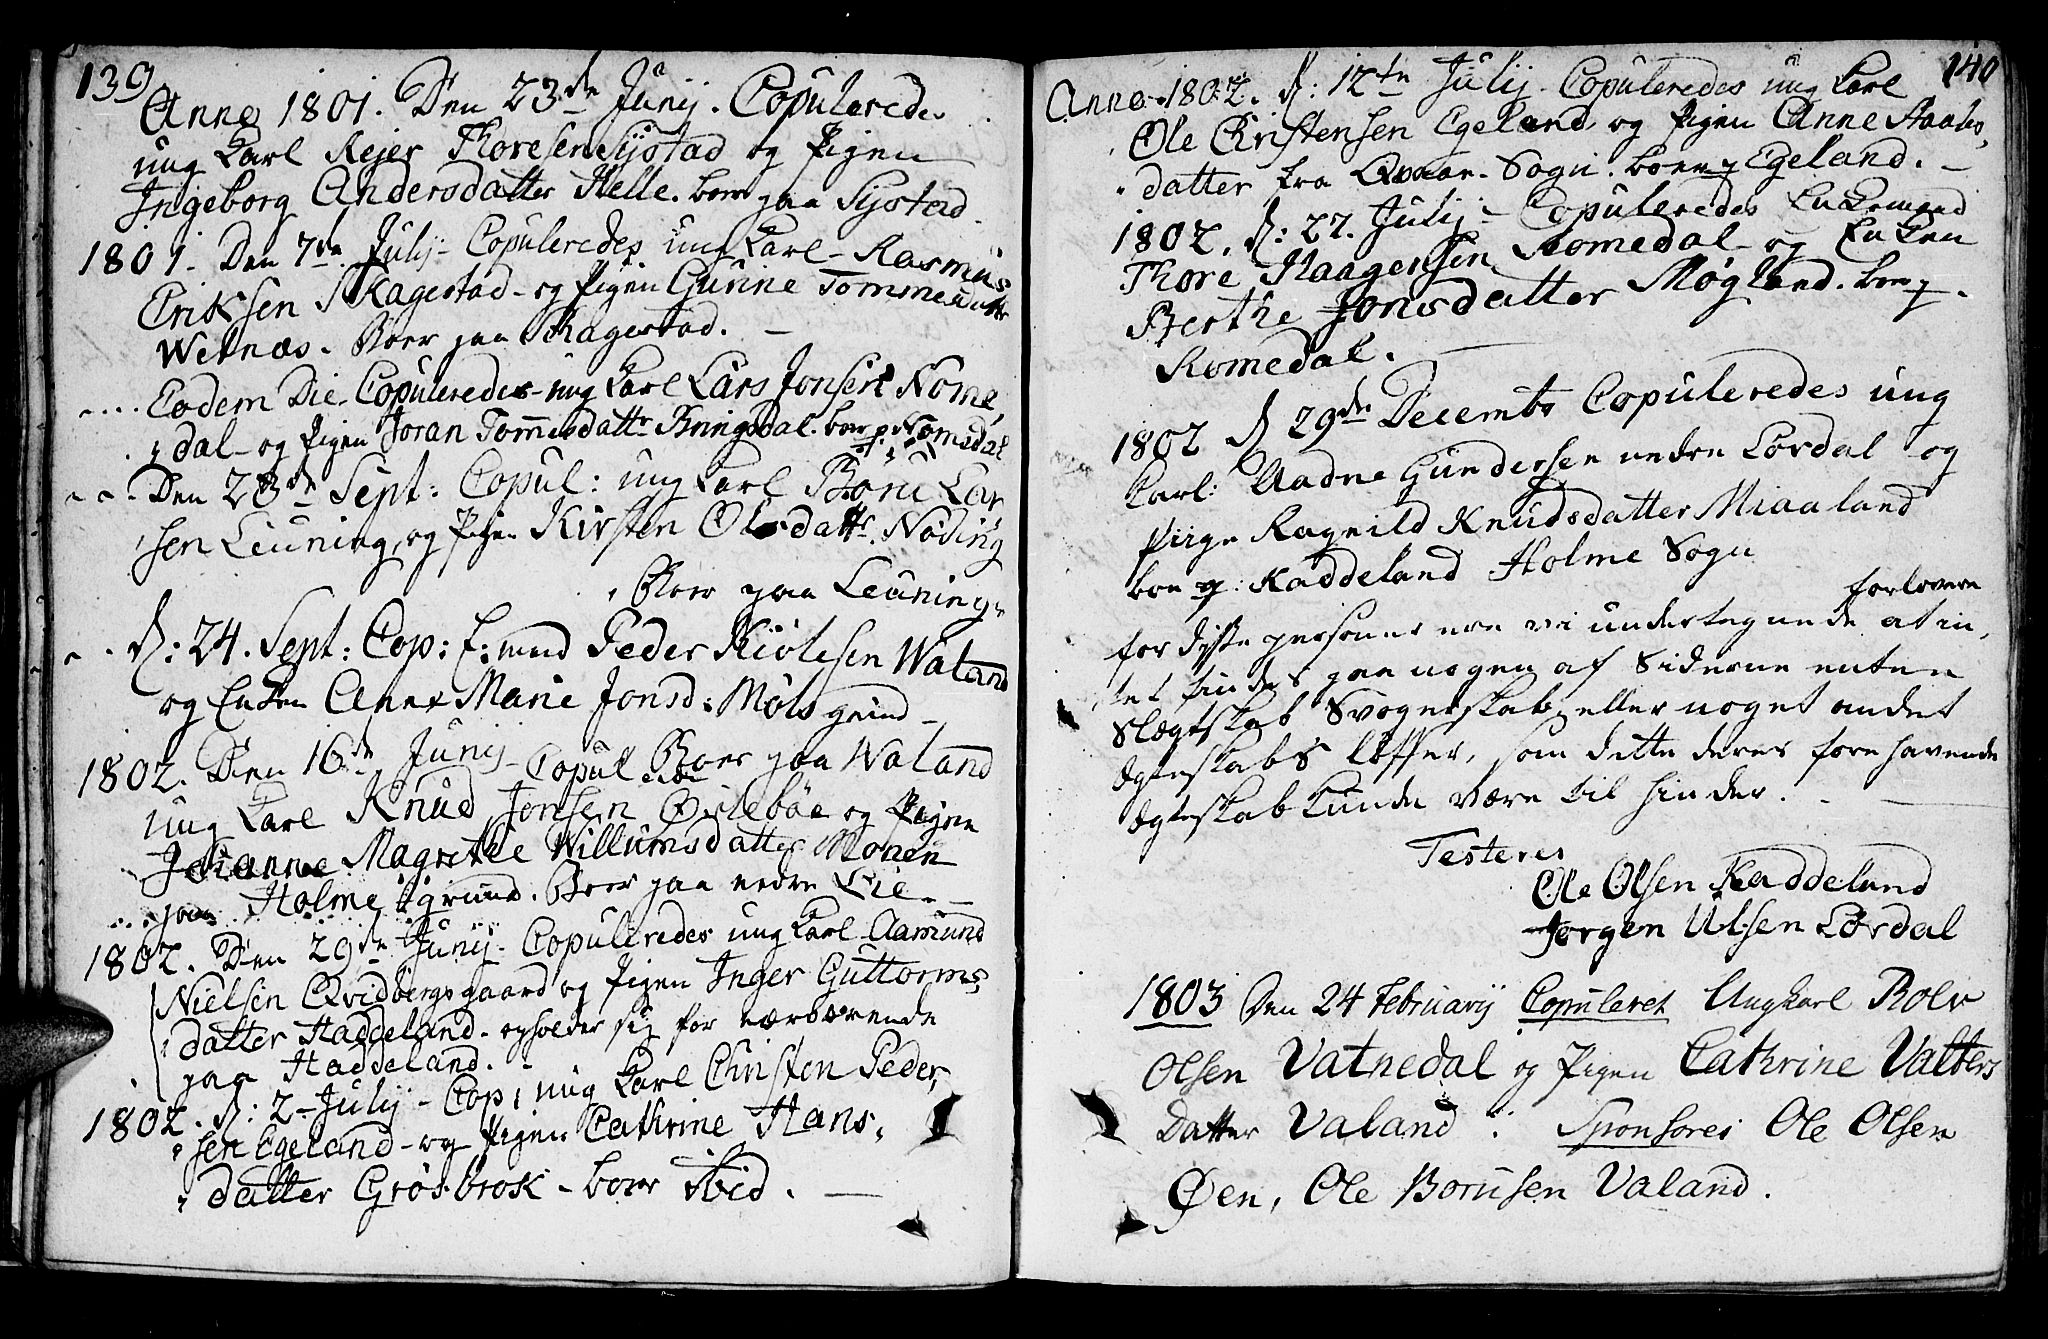 139
Anno 1801. Den 23de Junij. Copulerede
ung Karl Rejer Thoresen Sijstad og Pigen
Ingeborg Andersdatter Helle. boer paa Sijstad.
1801. Den 7de Julij - Copuleredes ung Karl - Rasmus
Eriksen Skagestad - og Pigen Gurine Tommesdattr
Wetnæs. Boer paa Skagestad. -
Eodem Die. Copuleredes - ung Karl Lars Jonsen Nome,
dal - og Pigen Joran Tommesdattr Kringsdal. boer p: Nomedal
Den 23de Sept: Copul: ung Karl Böru Lar
sen Leuning, og Pigen Kirsten Olsdattr. Nöding
Boer paa Leuning.
D: 24. Sept: Cop: E:mand Peder Kiölesen Waland
og Enken Anne Marie Jonsd: Mölsgrind -
Boer paa Waland
1802. Den 16de Junij - Copul
ung Karl Knud Jonsen Øvleböe og Pigen
Johanne Magrethe Willumsdatter Monen
paa Holme grund. Boer paa nedre Lie. -
1802. Den 29de Junij - Copuleredes ung Karl Aamund
Nielsen Qvidbergsgaard og Pigen Inger Guttorms,
datter Haddeland - opholder sig for nærværende
paa Haddeland. -
1802. D: 2 - Julij - Cop, ung Karl Christen Peder,
sen Egeland - og Pigen Cathrine Hans,
datter Grösbrok - boer ibid. -
140
Anno 1802. D: 12te Julij - Copuleredes ung Karl
Ole Christensen Egeland, og Pigen Anne Staales,
datter fra Qvaas - Sogn. boer p Egeland. -
1802. D: 27. Julij - Copuleredes Enkemand
Thore Haagensen Romedal - og Enken
Berthe Jonsdatter Møgland. boer p.
Romedal.
1802 D 29de Decembr Copuleredes ung
Karl: Aadne Gundersen nedre Lordal og
Pige Ragnild Knudsdatter Miaaland
boe p: Kaddeland Holme Sogn
for disse personer ere vi undertegnede forlovere at in,
tet findes paa nogen af Siderne enten
Slægtskab Svogerskab eller noget andet
Ægteskabs löffter, som dette deres fore havende
Ægteskab kunde være til hinder. -
Testerer
Ole Olsen Kaddeland
Jørgen Ulsen Lordal
1803 Den 24 Februarij Copuleret Ungkarl Rolv
Olsen Vatnedal og Pigen Cathrine Valbers
Datter Valand. Sponsores Ole Olsen
Øen, Ole Borusen Valand.